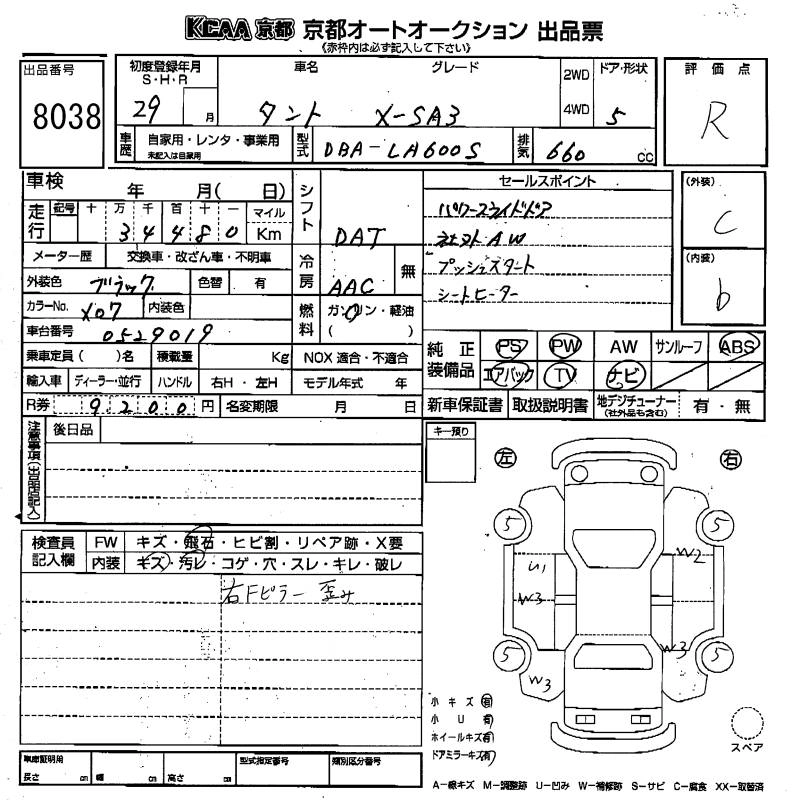 KCAA 京都 京都オートオークション 出品票
《赤枠内は必ず記入して下さい》
出品番号 8038
初度登録年月 S・H・R 29 月
車名 タント
グレード X-SA3
2WD 4WD
ドア・形状 5
評価点 R
車歴 自家用・レンタ・事業用 未記入は自家用
型式 DBA-LA600S
排気 660 cc
車検 年 月( 日)
走行 記号 十 万 千 百 十 一 マイル
3 4 4 8 0 Km
メーター歴 交換車・改ざん車・不明車
外装色 ブラック 色替 有
カラーNo. X07 内装色
車台番号 0529019
乗車定員 ( )名 積載量 Kg
輸入車 ディーラー・並行 ハンドル 右H・左H
R券 9200円 名変期限 月 日
シフト DAT
冷房 AAC 無
燃料 ガソリン・軽油 ( )
NOX 適合・不適合
モデル年式 年
セールスポイント
パワースライドドア
社外AW
プッシュスタート
シートヒーター
(外装) C
(内装) b
純正装備品 PS PW AW サンルーフ ABS
エアバック TV ナビ
新車保証書 取扱説明書 地デジチューナー (社外品も含む) 有・無
注意事項(出品店記入)
後日品
キー預り
左 右
検査員記入欄
FW キズ・飛石・ヒビ割・リペア跡・X要
内装 キズ・汚レ・コゲ・穴・スレ・キレ・破レ
右Fピラー 歪み
5 5
U1 W2
W3
W3
5 5
W3
小キズ 有
小U 有
ホイールキズ 有
ドアミラーキズ 有
スペア
車庫証明用 長さ cm 幅 cm 高さ cm
型式指定番号
類別区分番号
A-線キズ M-調整跡 U-凹み W-補修跡 S-サビ C-腐食 XX-取替済